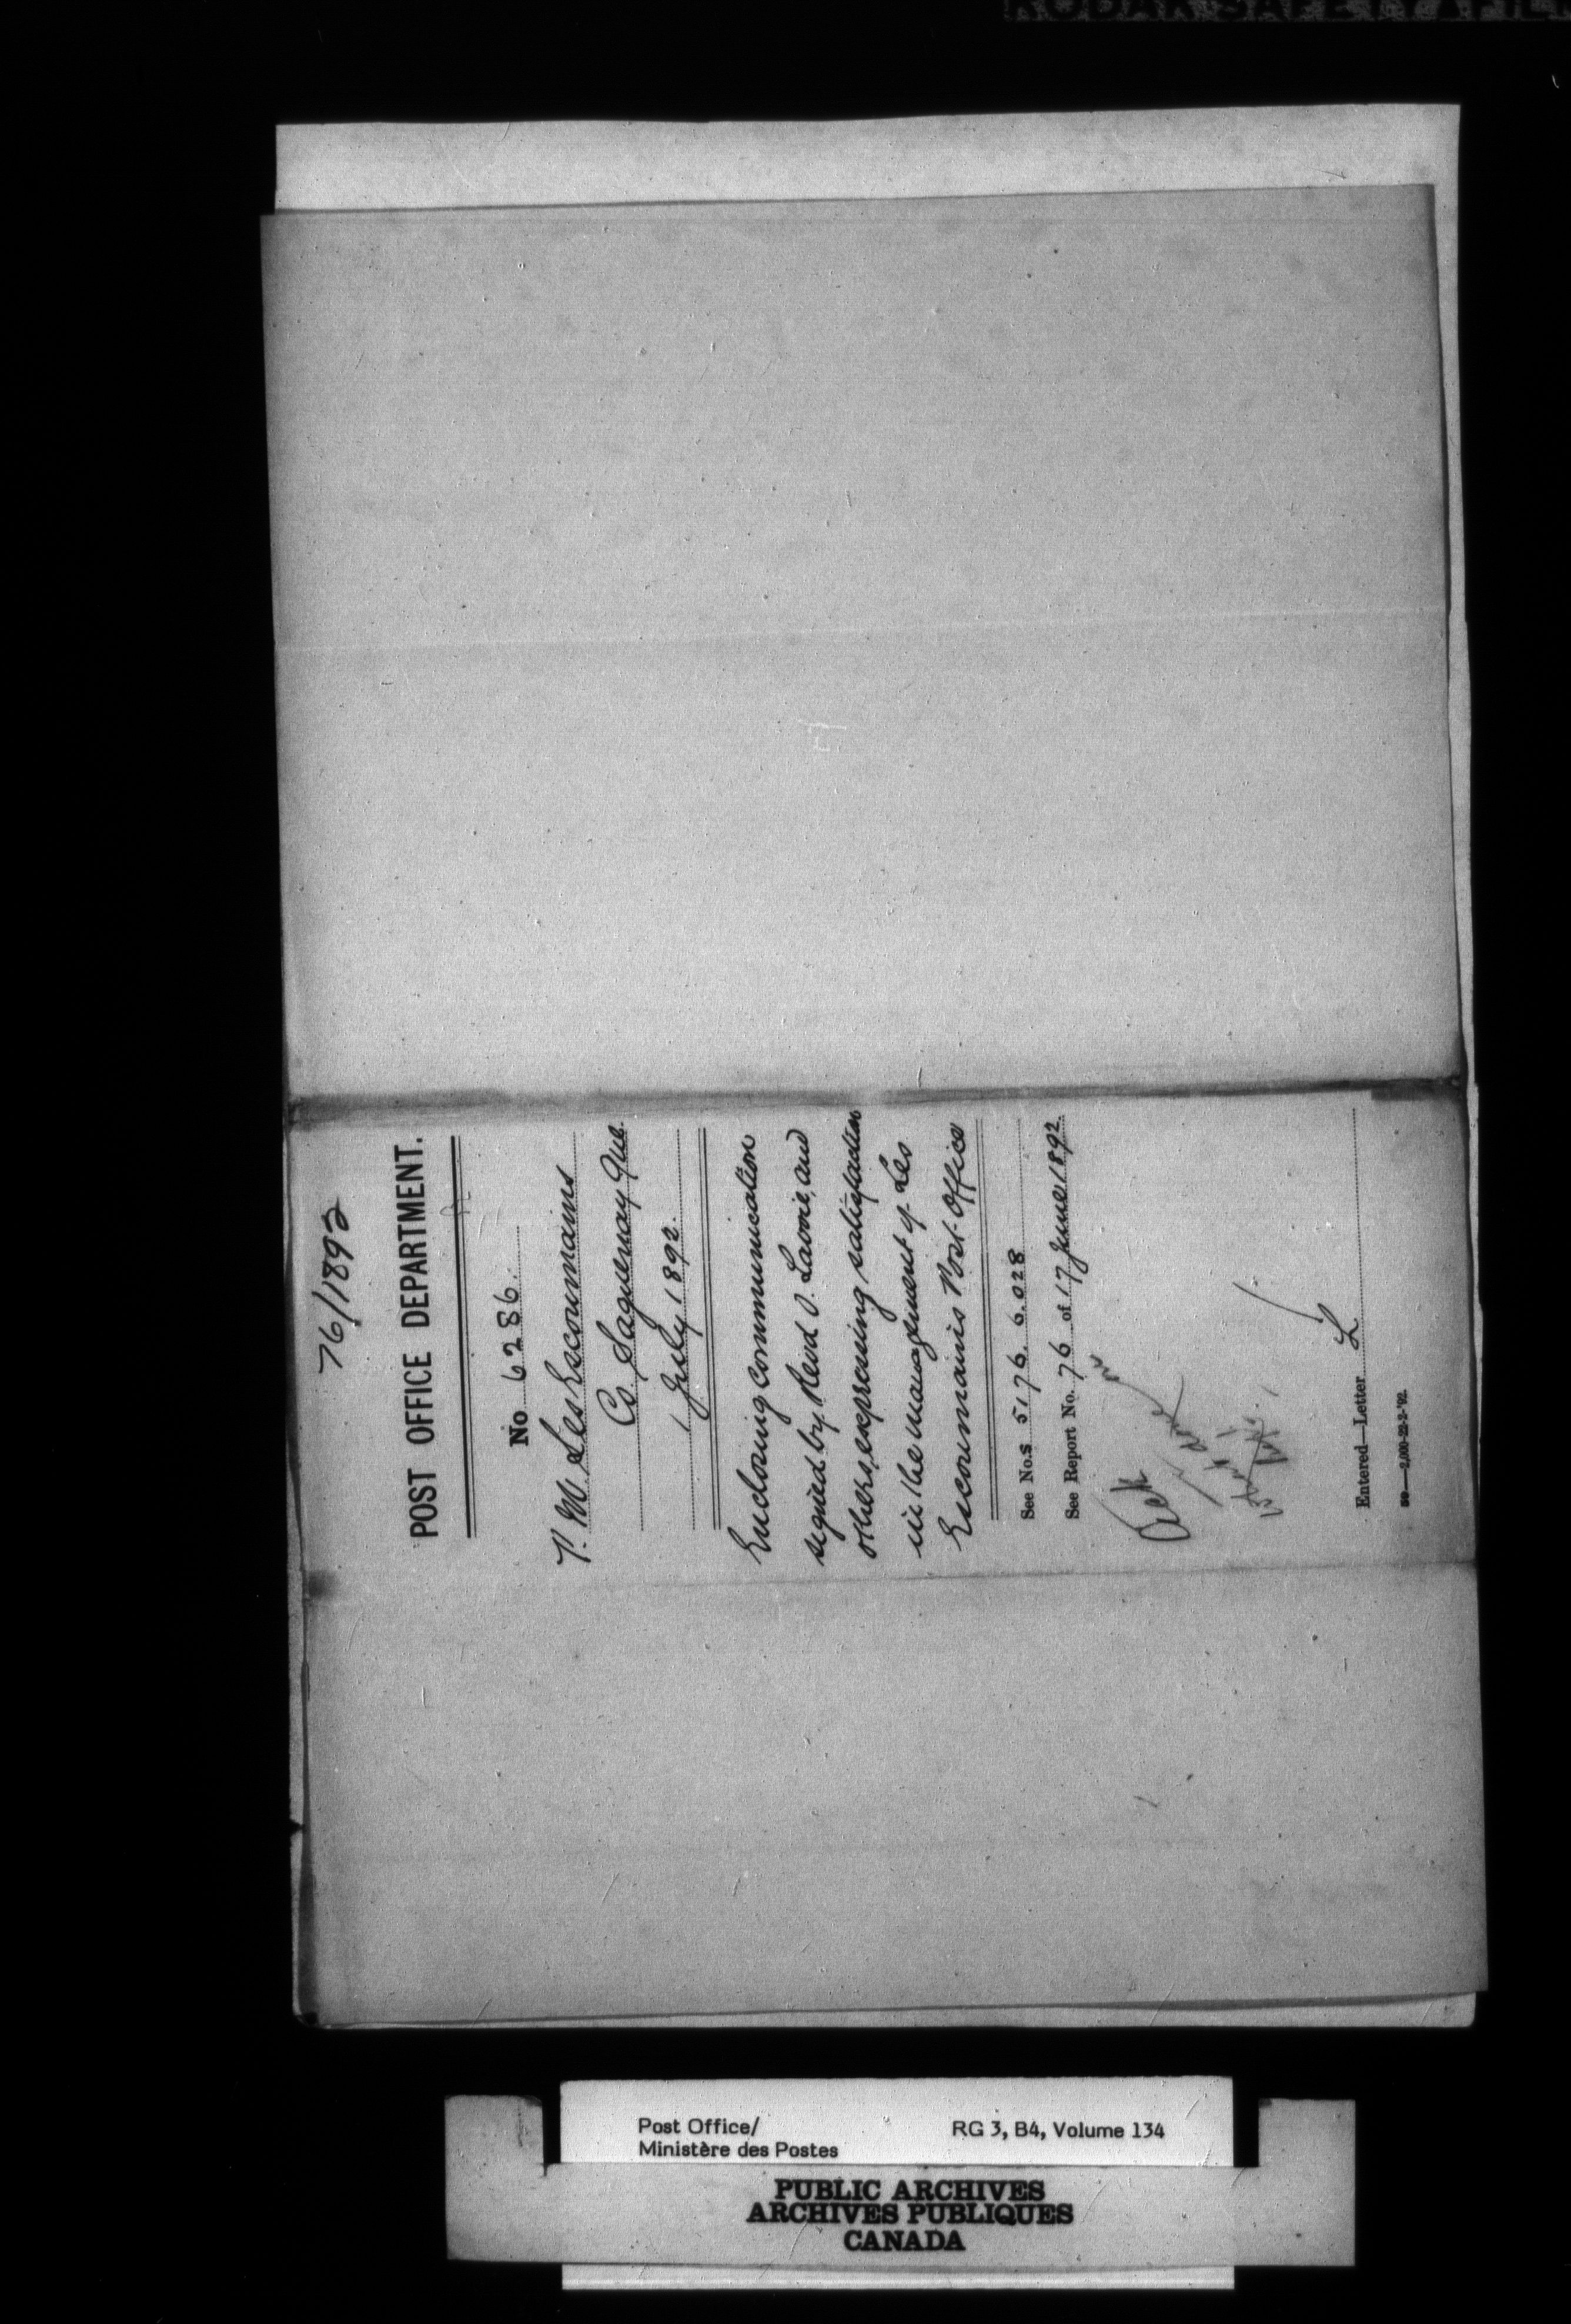 76/1892
POST OFFICE DEPARTMENT.
No 6286.
P. M. Les Escoumains
Co. Saguenay Que.
1 July 1892.
Enclosing communication
signed by Revd O. Lavoie, and
others, expressing satisfaction
in the management of Les
Escoumains Post Office
See No.s 5176. 6.028
See Report No. 76 of 17 June 1892.
Ack
Entered—Letter L
50—2,000-22-2-'92.
Post Office/
Ministère des Postes
RG 3, B4, Volume 134
PUBLIC ARCHIVES
ARCHIVES PUBLIQUES
CANADA